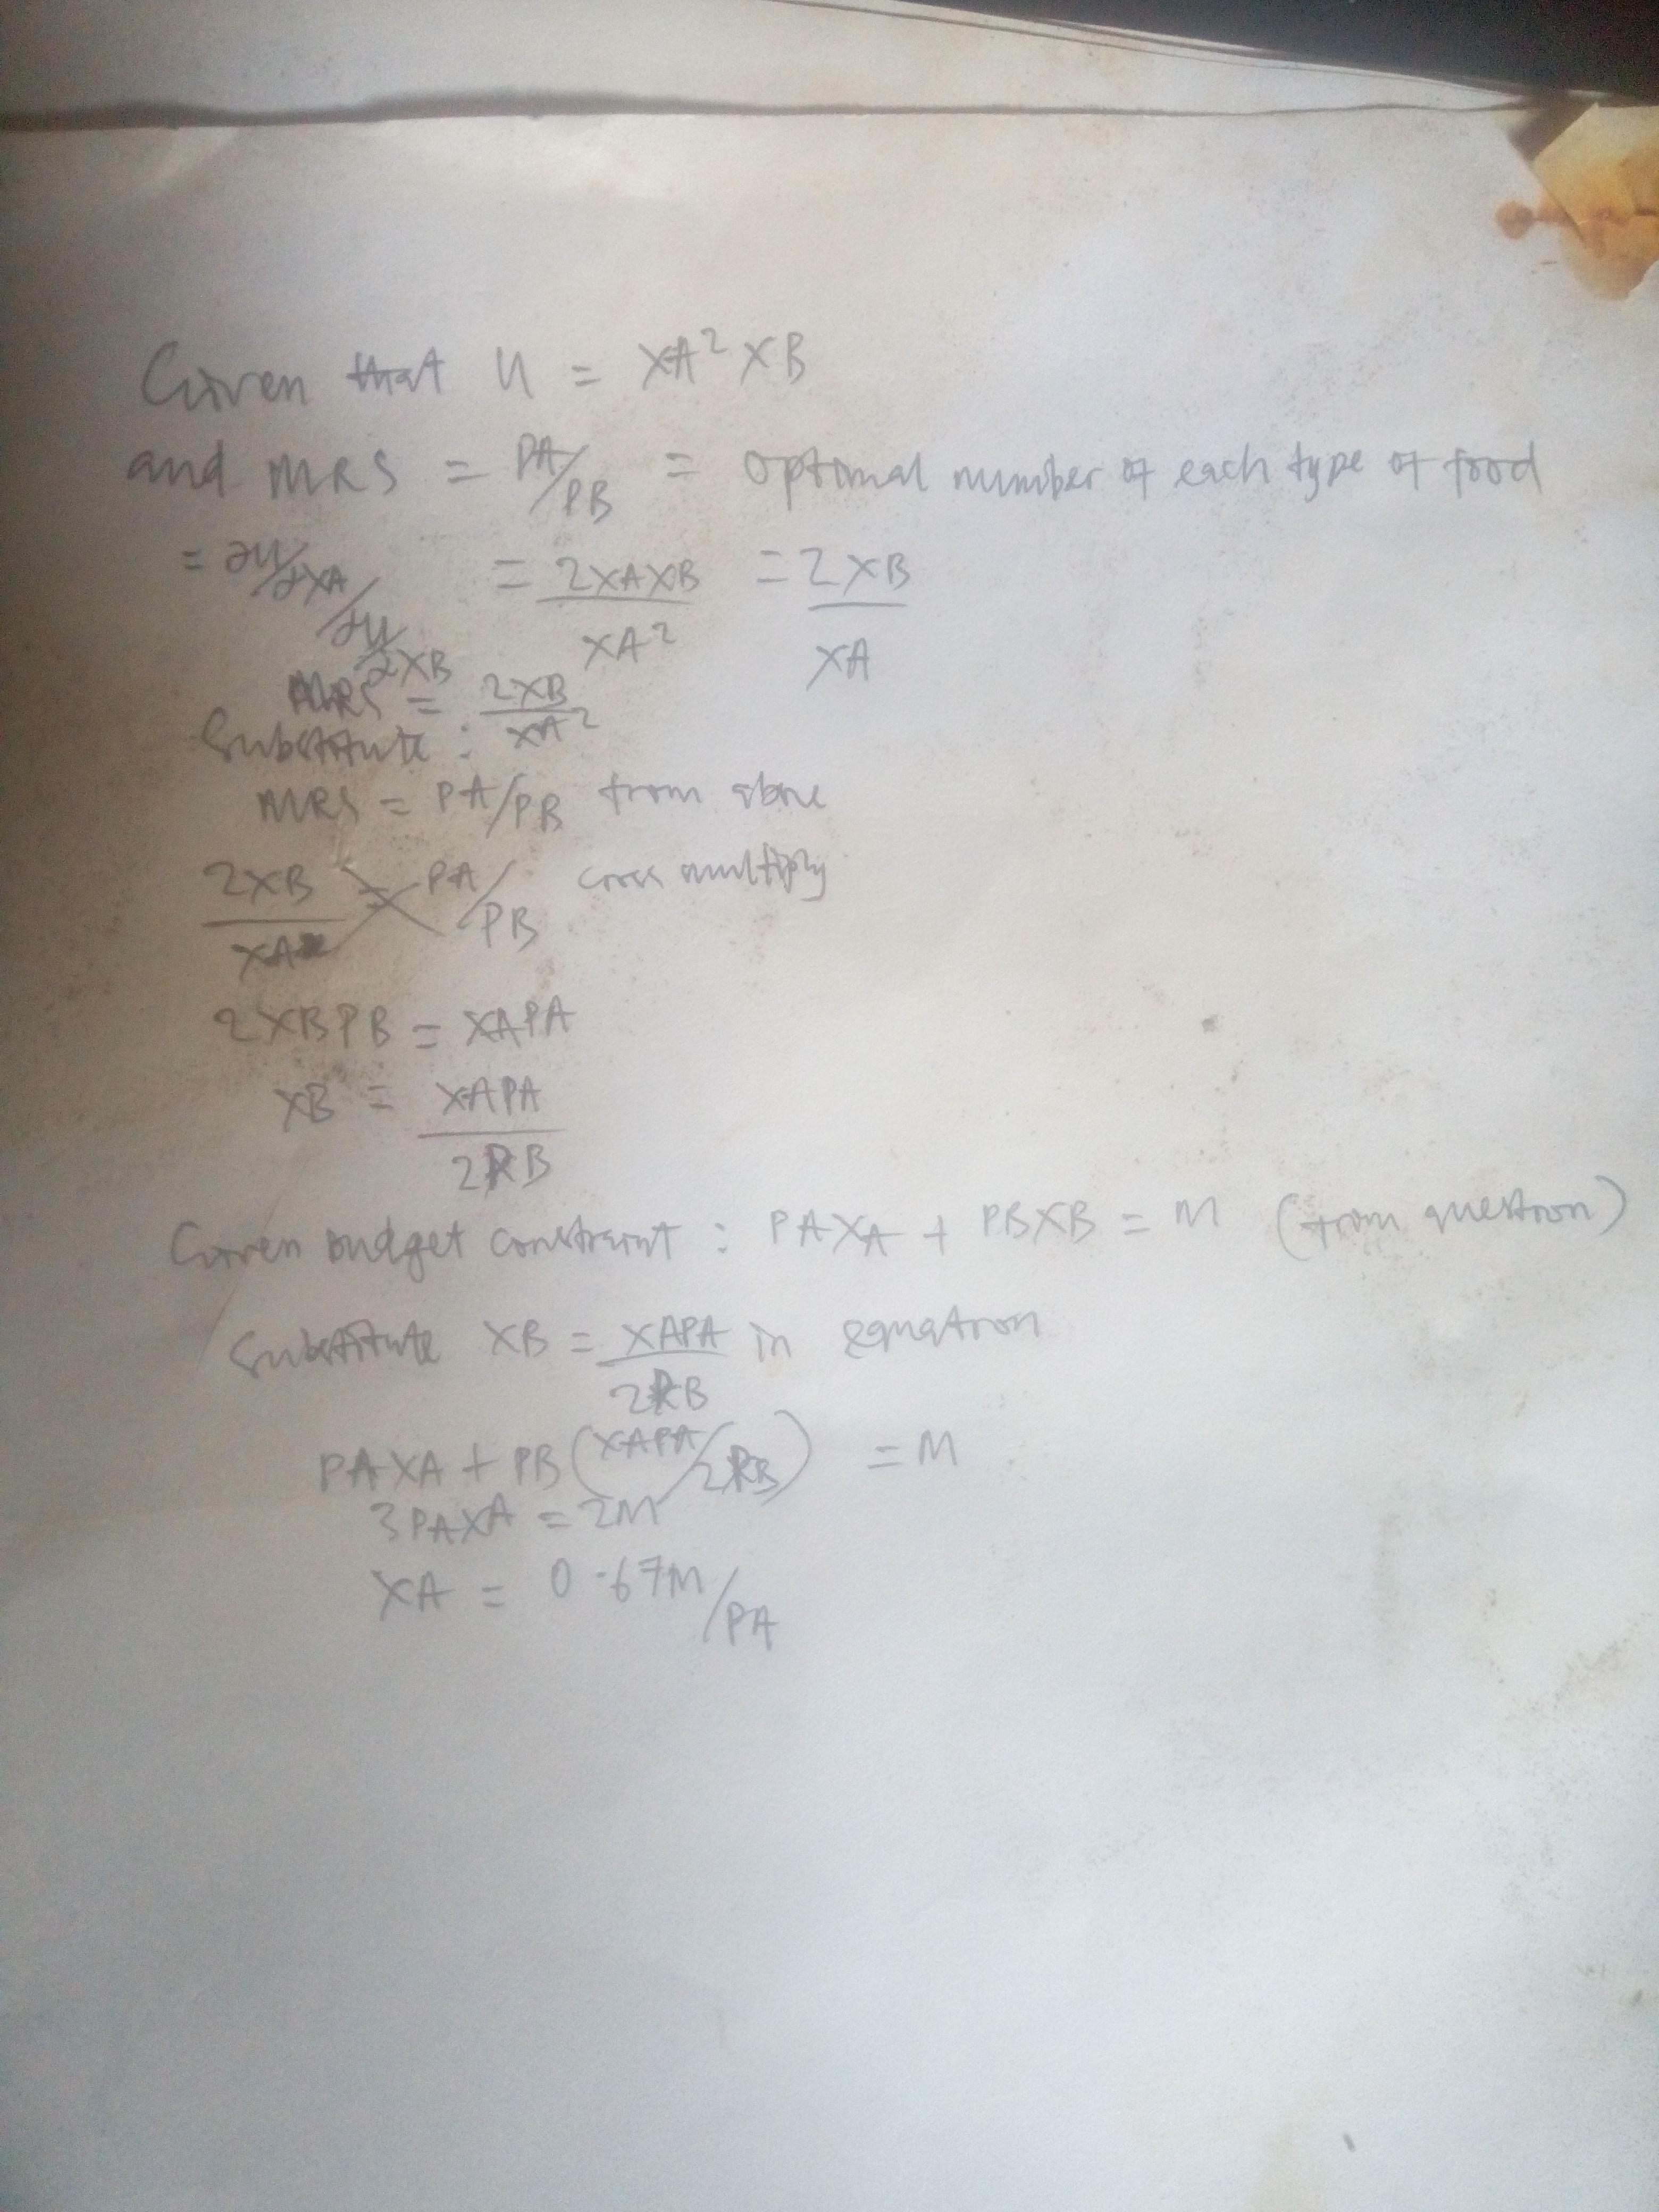 Given that U = XA² XB
and MRS = PA/PB = optimal number of each type of food
= ∂U/∂XA / ∂U/∂XB = 2XAXB / XA² = 2XB / XA
MRS = 2XB / XA²
Substitute :
MRS = PA/PB from above
2XB / XA = PA/PB cross multiply
2XBPB = XAPA
XB = XAPA / 2PB
Given budget constraint : PAXA + PBXB = M (from question)
Substitute XB = XAPA / 2PB in equation
PAXA + PB(XAPA/2PB) = M
3PAXA = 2M
XA = 0.67M/PA